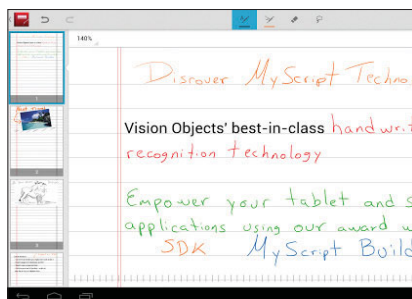 140%
Discover MyScript Techno
Vision Objects' best-in-class handwrit
recognition technology
Empower your tablet and s
applications using our award w
SDK MyScript Build
1
2
3